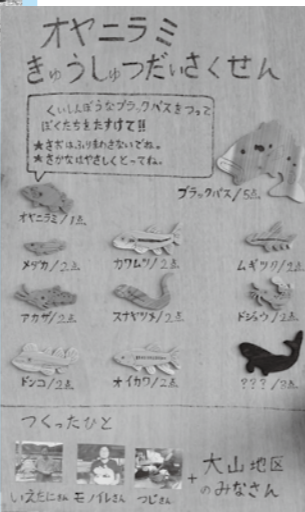 オヤニラミ
きゅうしゅつだいさくせん
くいしんぼうなブラックバスをつって
ぼくたちをたすけて!!
★さおはふりまわさないでね。
★さかなはやさしくとってね。
ブラックバス/5点
オヤニラミ/1点
メダカ/2点 カワムツ/2点 ムギツク/2点
アカザ/2点 スナヤツメ/2点 ドジョウ/2点
ドンコ/2点 オイカワ/2点 ???/3点
つくったひと
いえたにさん モノイレさん つじさん + 大山地区
のみなさん